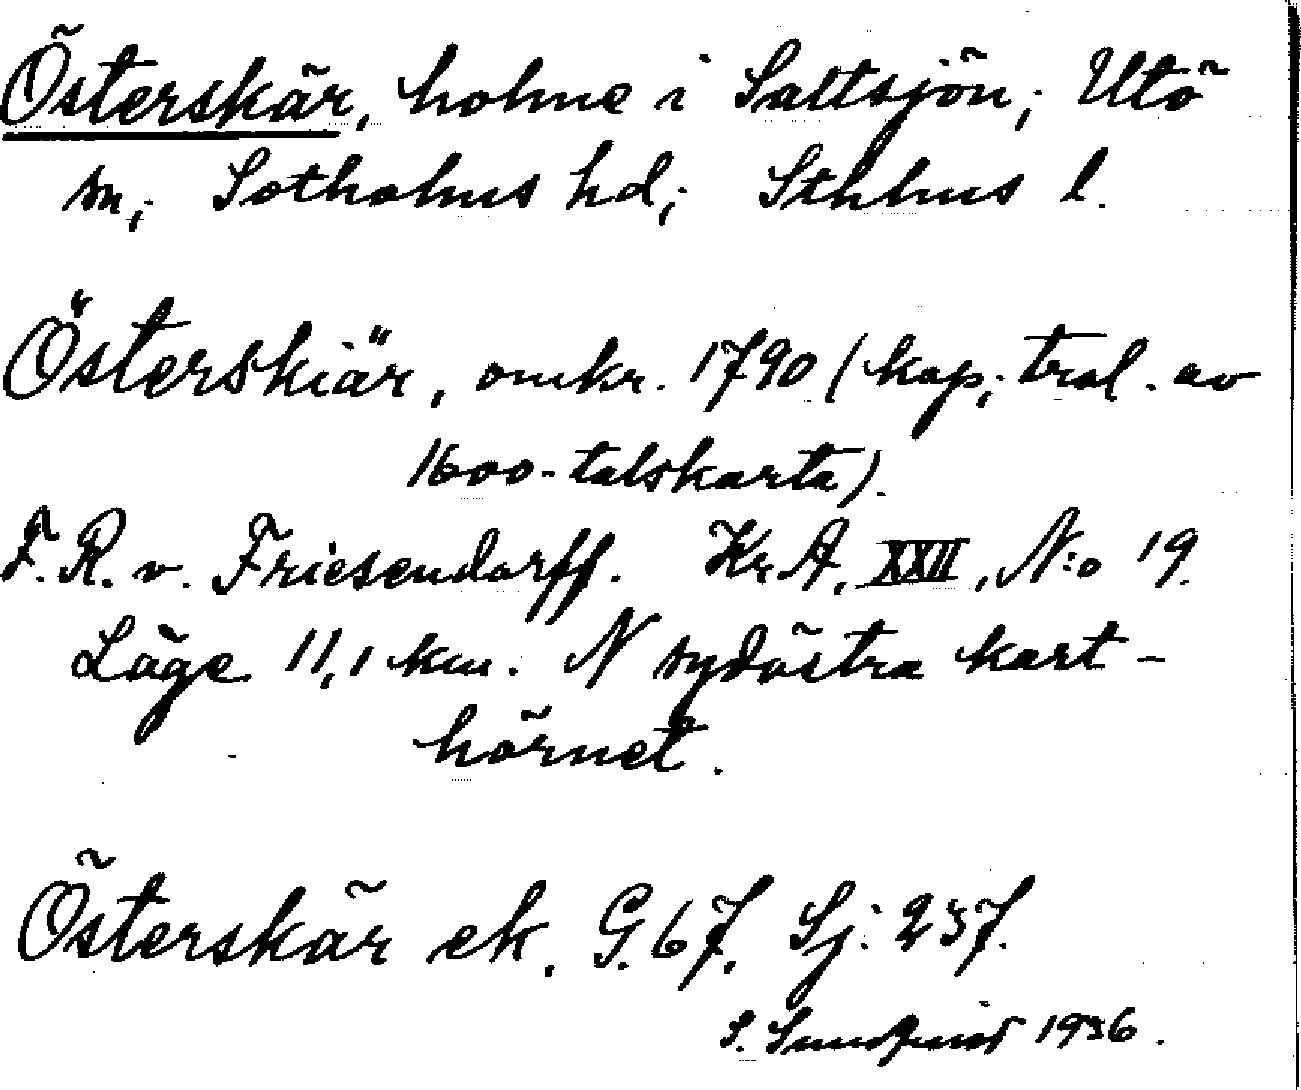 Österskär, holme i Saltsjön; Utö
sn; Sotholms hd; Sthlms l.
Österskiär, omkr. 1790 (kop; trol. av
1600-talskarta).
F. R. v. Friesendorff. Kr. A. XXII, N:o 19.
Läge 11,1 km. N sydöstra kart-
hörnet.
Österskär ek. G. 67. Sj: 237.
S. Sundqvist 1936.